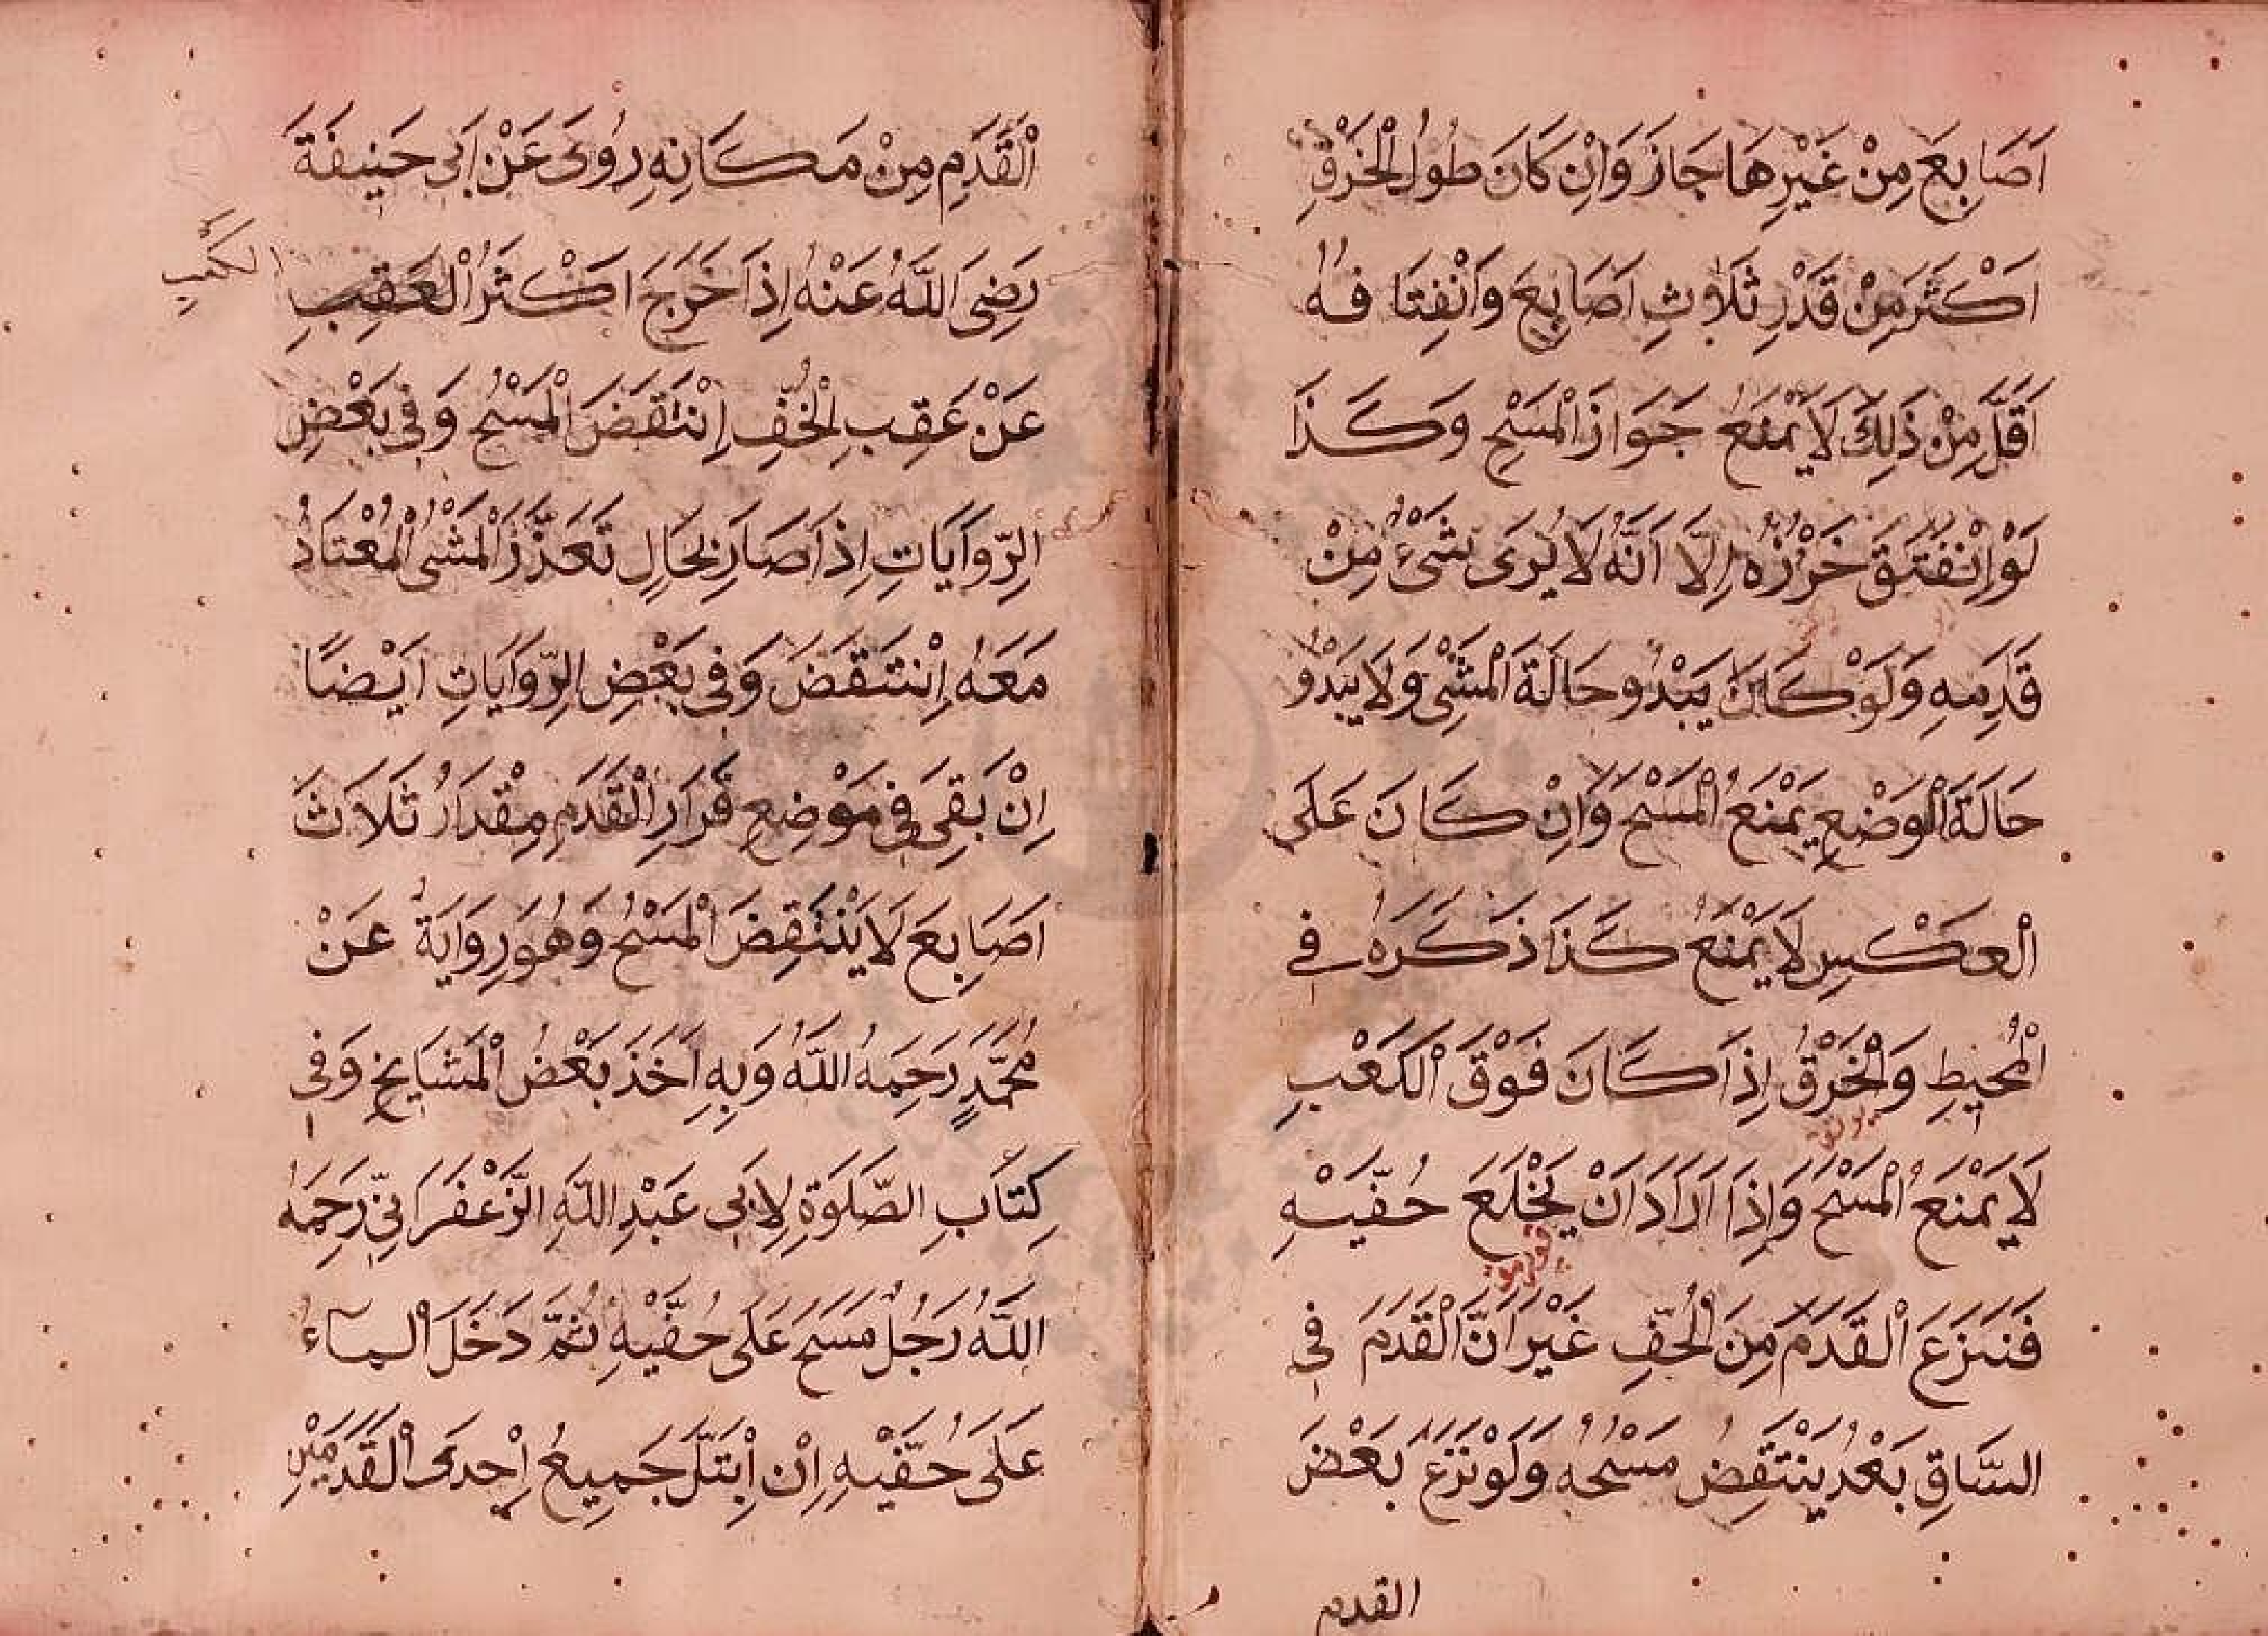 اَصَابِعَ مِنْ غَيْرِهَا جَازَ وَاِنْ كَانَ طُولُ الْخَرْقِ
اَكْثَرَ مِنْ قَدْرِ ثَلَاثِ اَصَابِعَ وَانْفِتَا فُهُ
اَقَلَّ مِنْ ذَلِكَ لَا يَمْنَعُ جَوَازَ الْمَسْحِ وَكَذَا
لَوْ اِنْفَتَقَ خَرْزُهُ اِلَّا اَنَّهُ لَا يُرَى شَىْءٌ مِنْ
قَدَمِهِ وَلَوْ كَانَ يَبْدُو حَالَةَ الْمَشْىِ وَلَا يَبْدُو
حَالَةَ الْوَضْعِ يَمْنَعُ الْمَسْحَ وَاِنْ كَانَ عَلَى
الْعَكْسِ لَا يَمْنَعُ كَذَا ذَكَرَهُ فِى
الْمُحِيطِ وَالْخَرْقُ اِذَا كَانَ فَوْقَ الْكَعْبِ
لَا يَمْنَعُ الْمَسْحَ وَاِذَا اَرَادَ اَنْ يَخْلَعَ خُفَّيْهِ
فَنَزَعَ الْقَدَمَ مِنَ الْخُفِّ غَيْرَ اَنَّ الْقَدَمَ فِى
السَّاقِ بَعْدُ يَنْتَقِضُ مَسْحُهُ وَلَوْ نَزَعَ بَعْضَ
القدم
الْقَدَمِ مِنْ مَكَانِهِ رُوِىَ عَنْ اَبِى حَنِيفَةَ
رَضِىَ اللَّهُ عَنْهُ اِذَا خَرَجَ اَكْثَرُ الْعَقِبِ
الكعب
عَنْ عَقِبِ الْخُفِّ اِنْتَقَضَ الْمَسْحُ وَفِى بَعْضِ
الرِّوَايَاتِ اِذَا صَارَ بِحَالٍ تَعَذَّرَ الْمَشْىُ الْمُعْتَادُ
مَعَهُ اِنْتَقَضَ وَفِى بَعْضِ الرِّوَايَاتِ اَيْضًا
اِنْ بَقِىَ فِى مَوْضِعِ قَرَارِ الْقَدَمِ مِقْدَارُ ثَلَاثَ
اَصَابِعَ لَا يَنْتَقِضُ الْمَسْحُ وَهُوَ رِوَايَةٌ عَنْ
مُحَمَّدٍ رَحِمَهُ اللَّهُ وَبِهِ اَخَذَ بَعْضُ الْمَشَايِخِ وَفِى
كِتَابِ الصَّلَوةِ لِاَبِى عَبْدِ اللَّهِ الزَّعْفَرَانِىِّ رَحِمَهُ
اللَّهُ رَجُلٌ مَسَحَ عَلَى خُفَّيْهِ ثُمَّ دَخَلَ الْمَاءُ
عَلَى خُفَّيْهِ اِنْ اِبْتَلَّ جَمِيعُ اِحْدَى الْقَدَمَيْنِ